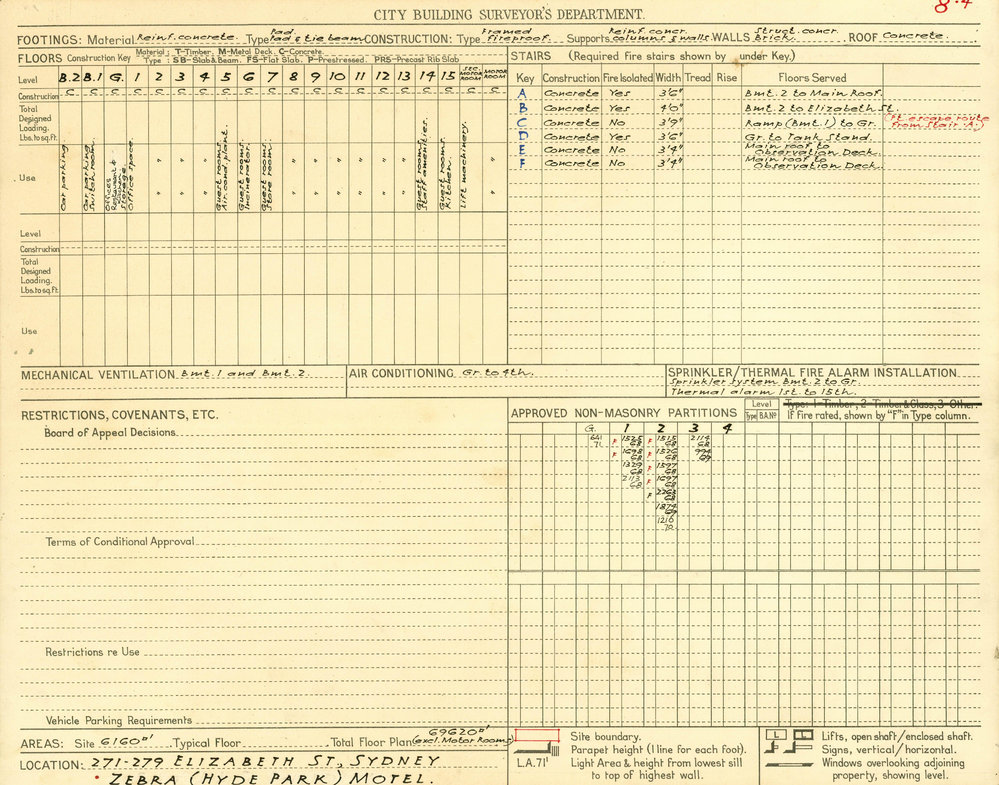 8.4
CITY BUILDING SURVEYOR'S DEPARTMENT.
FOOTINGS: Material Reinf. concrete. Type Pad, Pad & tie beam CONSTRUCTION: Type Framed fireproof. Supports Reinf. concr. columns & walls WALLS Struct. concr. Brick. ROOF Concrete.
FLOORS Construction Key Material: T-Timber, M-Metal Deck, C-Concrete.
Type: SB-Slab & Beam. FS-Flat Slab. P-Prestressed. PRS-Precast Rib Slab
Level B.2 B.1 G. 1 2 3 4 5 6 7 8 9 10 11 12 13 14 15 SEC. MOTOR ROOM MOTOR ROOM
Construction C C C C C C C C C C C C C C C C C C C C
Total Designed Loading. Lbs. to sq. ft.
Use
Car parking
Car parking Switch room.
Offices Restaurant & storage
Office space
" " "
" " "
Guest rooms. Air. cond. plant.
Guest rooms Incinerator.
Guest rooms Store room
" " " " " "
" " " " " "
Guest rooms. Staff amenities.
Guest rooms. Kitchen.
Lift machinery.
"
"
Level
Construction
Total Designed Loading. Lbs. to sq. ft.
Use
STAIRS (Required Fire stairs shown by under Key.)
Key Construction Fire Isolated Width Tread Rise Floors Served
A Concrete Yes 3'6" Bmt. 2 to Main Roof.
B Concrete Yes 4'0" Bmt. 2 to Elizabeth St.
C Concrete No 3'9" Ramp (Bmt. 1) to Gr. (Ft. escape route from Stair 'A.')
D Concrete Yes 3'6" Gr. to Tank Stand.
E Concrete No 3'4" Main roof to Observation Deck.
F Concrete No 3'4" Main roof to Observation Deck.
MECHANICAL VENTILATION Bmt. 1 and Bmt. 2.
AIR CONDITIONING Gr. to 4th.
SPRINKLER/THERMAL FIRE ALARM INSTALLATION
Sprinkler system Bmt. 2 to Gr.
Thermal alarm 1st. to 15th.
RESTRICTIONS, COVENANTS, ETC.
Board of Appeal Decisions
Terms of Conditional Approval
Restrictions re Use
Vehicle Parking Requirements
APPROVED NON-MASONRY PARTITIONS
Level
Type B.A.Nº
Type: 1-Timber, 2-Timber & Glass, 3-Other.
If Fire rated, shown by "F" in Type column.
G. 1 2 3 4
641/71 F 1525/68 F 1515/68 2114/68
F 1698/68 F 1526/68
1329/68 F 1597/68
2113/68 F 1697/68
F 2263/68
1874/69
1216/70
AREAS: Site 6160□' Typical Floor Total Floor Plan 69620□' (excl. Motor Rooms)
LOCATION: 271-279 ELIZABETH ST, SYDNEY
• ZEBRA (HYDE PARK) MOTEL.
Site boundary.
Parapet height (1 line for each foot).
L.A. 71' Light Area & height from lowest sill to top of highest wall.
L L Lifts, open shaft/enclosed shaft.
Signs, vertical/horizontal.
Windows overlooking adjoining property, showing level.